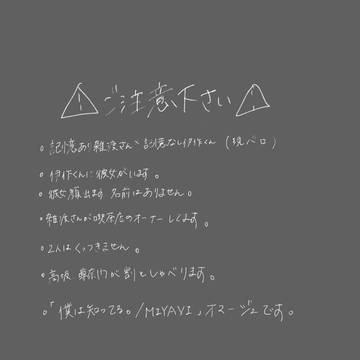 ⚠ご注意下さい⚠
。記憶あり雑渡さん×記憶なし伊作くん (現パロ)
。伊作くんに彼女がいます。
。彼女顔出ます 名前はありません。
。雑渡さんが喫茶店のオーナーしてます。
。2人はくっつきません。
。高坂 尊奈門が割としゃべります。
。「僕は知ってる。/MIYAVI」オマージュです。